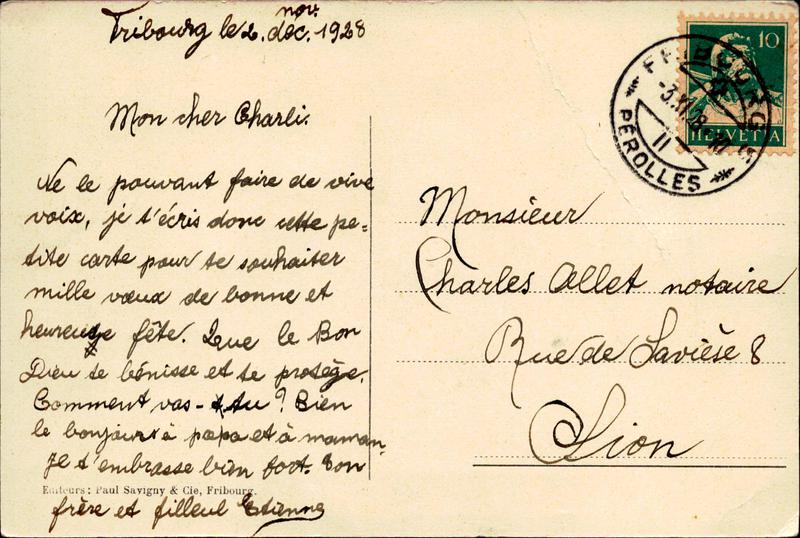 nov.
Fribourg le 2. déc. 1928
Mon cher Charli.
Ne le pouvant faire de vive
voix, je t'écris donc cette pe-
tite carte pour te souhaiter
mille vœux de bonne et
heureuse fête. Que le Bon
Dieu te bénisse et te protège.
Comment vas-tu? Bien
le bonjour à papa et à maman.
Je t'embrasse bien fort. Ton
Editeurs: Paul Savigny & Cie, Fribourg.
frère et filleul Etienne
10
HELVETIA
FRIBOURG
-3.XI.28.
II
PÉROLLES
Monsieur
Charles Allet notaire
Rue de Savièse 8
Sion